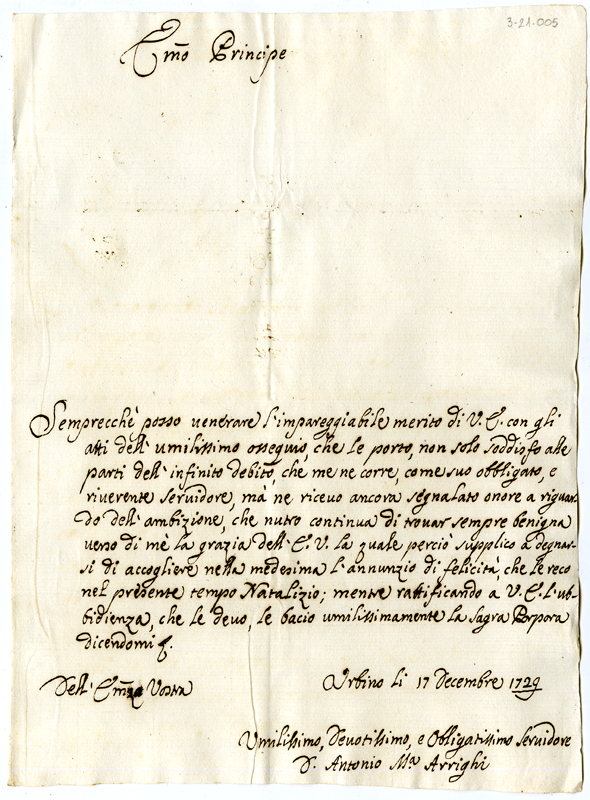 3-21-005
Em̃o Principe
Semprecchè posso venerare l'impareggiabile merito di V. E. con gli
atti dell' umilissimo ossequio, che le porto, non solo soddisfo alle
parti dell' infinito debito, che me ne corre, come suo obbligato, e
riverente servidore, mà ne ricevo ancora segnalato onore a riguar
do dell' ambizione, che nutro continua di trovar sempre benigna
verso di mè la grazia dell' E. V. la quale perciò supplico a degnar-
si di accogliere nella medesima l'annunzio di felicità, che le reco
nel presente tempo Natalizio; mentre rattificando a V. E. l'ub-
bidienza, che le devo, le bacio umilissimamente la Sagra Porpora
dicendomi
Dell' Em̃a Vostra
Urbino li 17 Decembre 1729
Umilissimo, Devotissimo, e Obligatissimo Servidore
D. Antonio M.a Arrighi